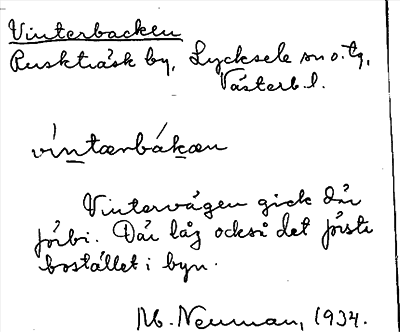 Vinterbacken
Ruskträsk by, Lycksele sn o. tg,
Västerb. l.
víntærbákæn
Vintervägen gick där
förbi. Där låg också det första
bostället i byn.
M. Neuman, 1934.